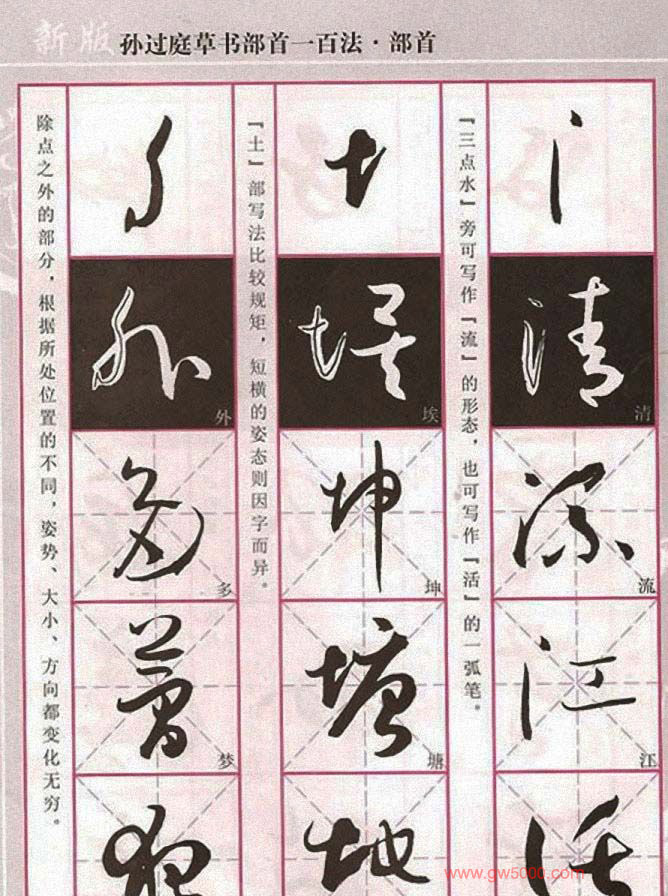 新版 孙过庭草书部首一百法·部首
『三点水』旁可写作『流』的形态，也可写作『活』的一弧笔。
清
流
江
『土』部写法比较规矩，短横的姿态则因字而异。
埃
坤
塘
地
除点之外的部分，根据所处位置的不同，姿势、大小、方向都变化无穷。
外
多
梦
www.gw5000.com